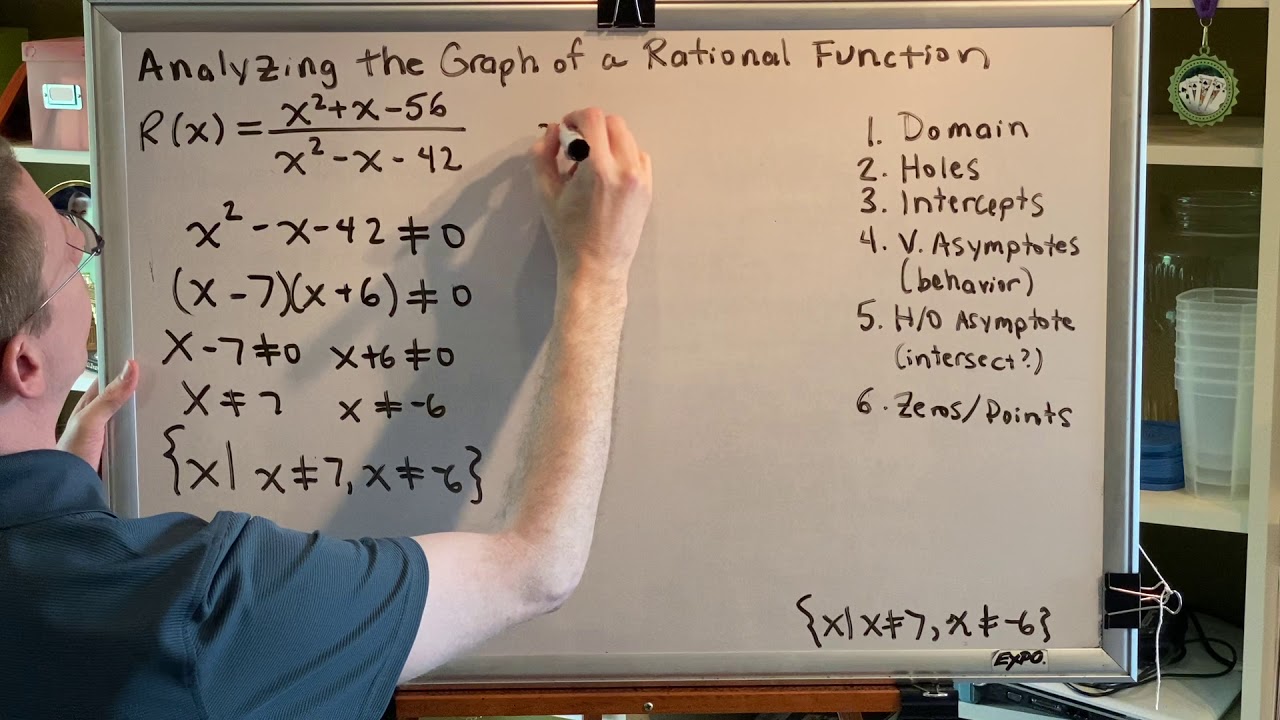 Analyzing the Graph of a Rational Function
R(x) = x²+x-56
x²-x-42
x²-x-42≠0
(x-7)(x+6)≠0
x-7≠0 x+6≠0
x≠7 x≠-6
{x| x≠7, x≠-6}
1. Domain
2. Holes
3. Intercepts
4. V. Asymptotes
(behavior)
5. H/O Asymptote
(intersect?)
6. Zeros/Points
{x|x≠7, x≠-6}
EXPO